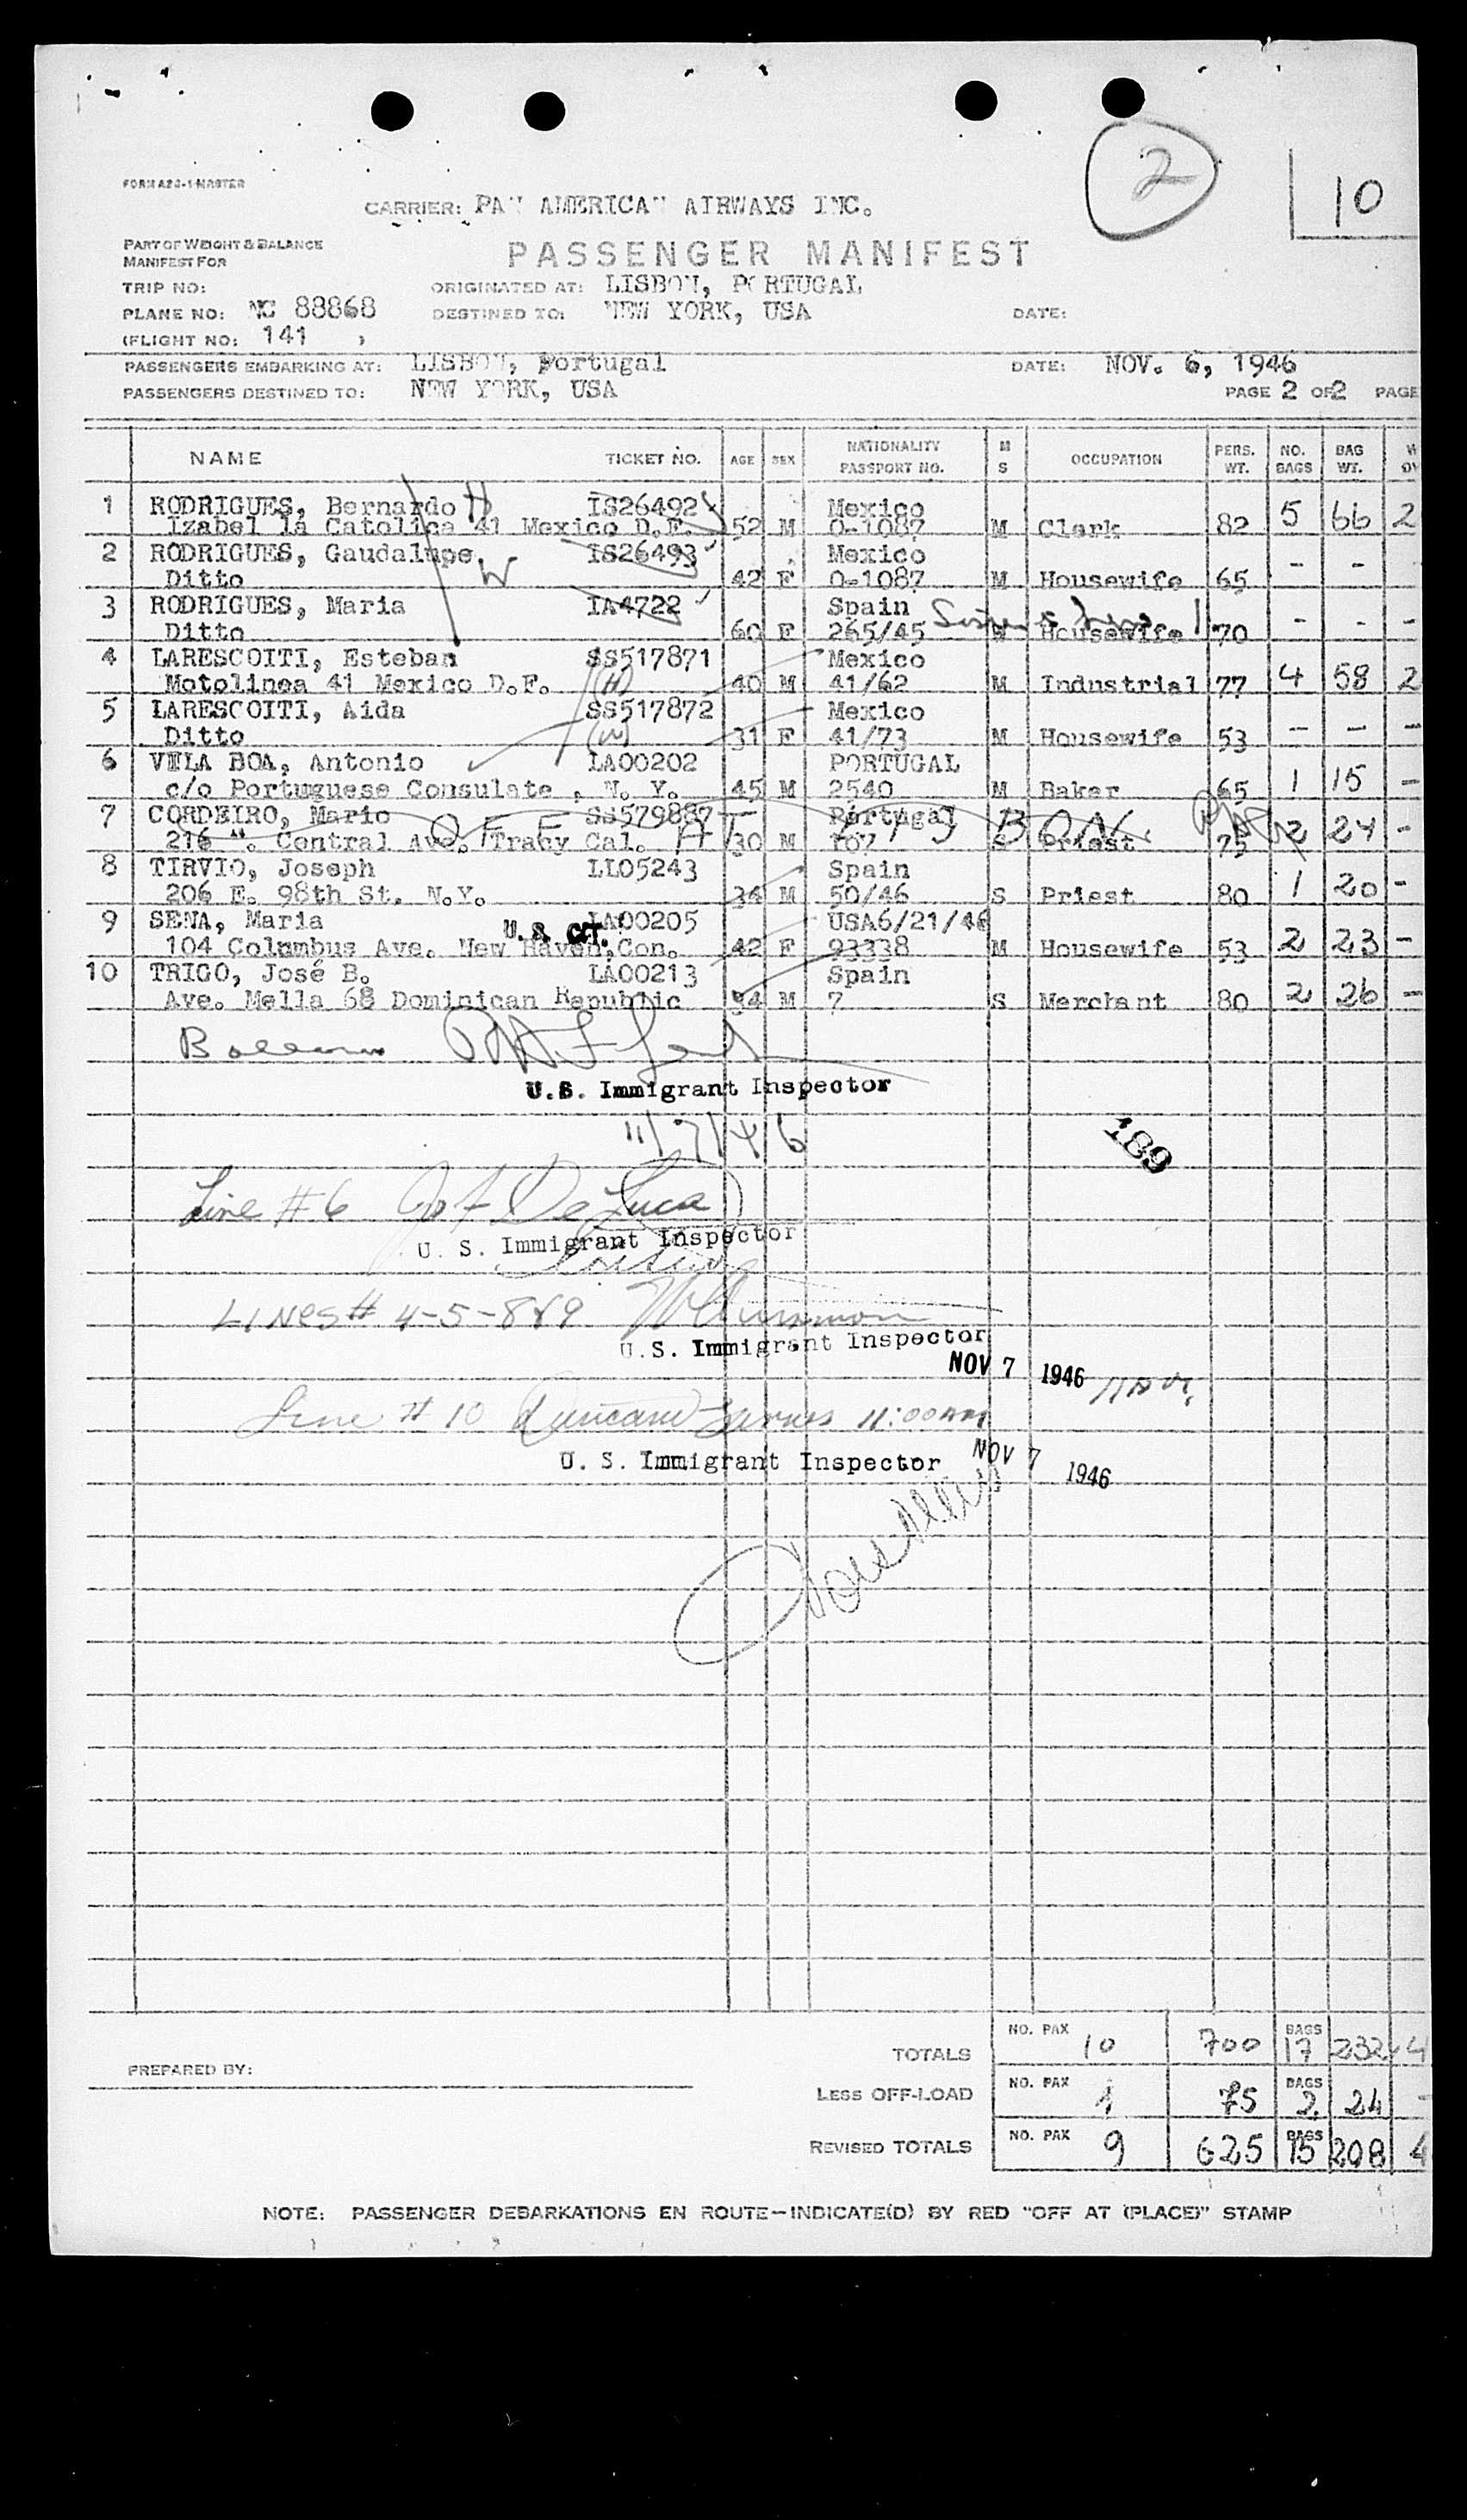 2
10
FORM A20-1-MASTER
CARRIER: PAN AMERICAN AIRWAYS INC.
PART OF WEIGHT & BALANCE
MANIFEST FOR
PASSENGER MANIFEST
TRIP NO:
ORIGINATED AT: LISBON, PORTUGAL
PLANE NO: NC 88868
DESTINED TO: NEW YORK, USA
DATE:
(FLIGHT NO: 141 )
PASSENGERS EMBARKING AT: LISBON, Portugal DATE: NOV. 6, 1946
PASSENGERS DESTINED TO: NEW YORK, USA PAGE 2 OF 2 PAGE
NAME TICKET NO. AGE SEX NATIONALITY PASSPORT NO. M S OCCUPATION PERS. WT. NO. BAGS BAG WT.
1 RODRIGUES, Bernardo H IS26492 Mexico 5 66 2
Izabel la Catolica 41 Mexico D.F. 52 M 0-1087 M Clerk 82
2 RODRIGUES, Gaudalupe W IS26493 Mexico - -
Ditto 42 F 0-1087 M Housewife 65
3 RODRIGUES, Maria IA4722 Spain - - -
Ditto 60 F 265/45 Housewife 70
4 LARESCOITI, Esteban SS517871 Mexico 4 58 2
Motolinea 41 Mexico D.F. (H) 40 M 41/62 M Industrial 77
5 LARESCOITI, Aida SS517872 Mexico - - -
Ditto (W) 31 F 41/73 M Housewife 53
6 VILA BOA, Antonio LA00202 PORTUGAL 1 15 -
c/o Portuguese Consulate, N. Y. 45 M 2540 M Baker 65
7 CORDEIRO, Mario SS579887 Portugal 2 24 -
216 W. Central Ave. Tracy Cal. 30 M 107 S Priest 75
OFF AT LISBON
8 TIRVIO, Joseph LL05243 Spain 1 20 -
206 E. 98th St. N.Y. 34 M 50/46 S Priest 80
9 SENA, Maria U.S. CIT. LA00205 USA6/21/46 2 23 -
104 Columbus Ave. New Haven, Con. 42 F 93338 M Housewife 53
10 TRIGO, José B. LA00213 Spain 2 26 -
Ave. Mella 68 Dominican Republic 34 M ? S Merchant 80
U.S. Immigrant Inspector
11/7/46
189
Line #6 Jos F De Luca
U. S. Immigrant Inspector
LINES # 4-5-8&9
U.S. Immigrant Inspector
NOV 7 1946
Line # 10 11:00AM
U. S. Immigrant Inspector NOV 7 1946
TOTALS NO. PAX 10 700 BAGS 17 232 4
PREPARED BY:
LESS OFF-LOAD NO. PAX 1 75 BAGS 2 24 -
REVISED TOTALS NO. PAX 9 625 BAGS 15 208 4
NOTE: PASSENGER DEBARKATIONS EN ROUTE—INDICATE(D) BY RED "OFF AT (PLACE)" STAMP